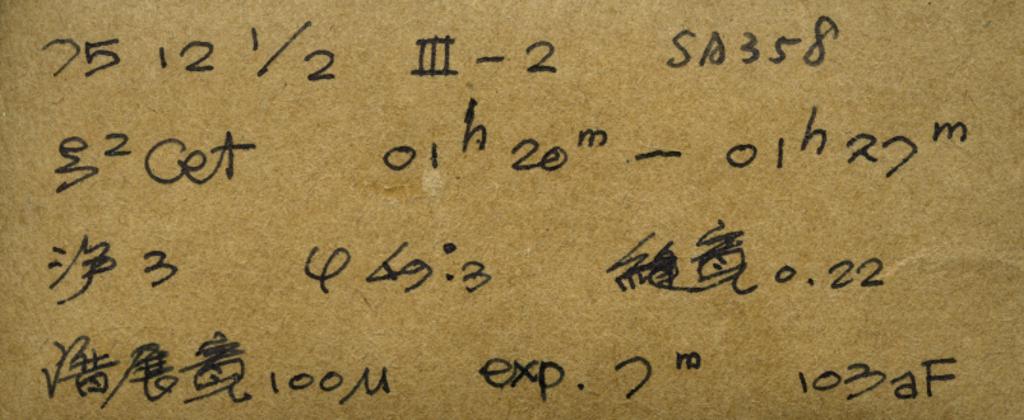 75 12 1/2 III-2 SA358
ξ² Cet 01ʰ 20ᵐ - 01ʰ 27ᵐ
净 3 φ :3 縫寬 0.22
谱展寬 100μ exp. 7ᵐ 103aF